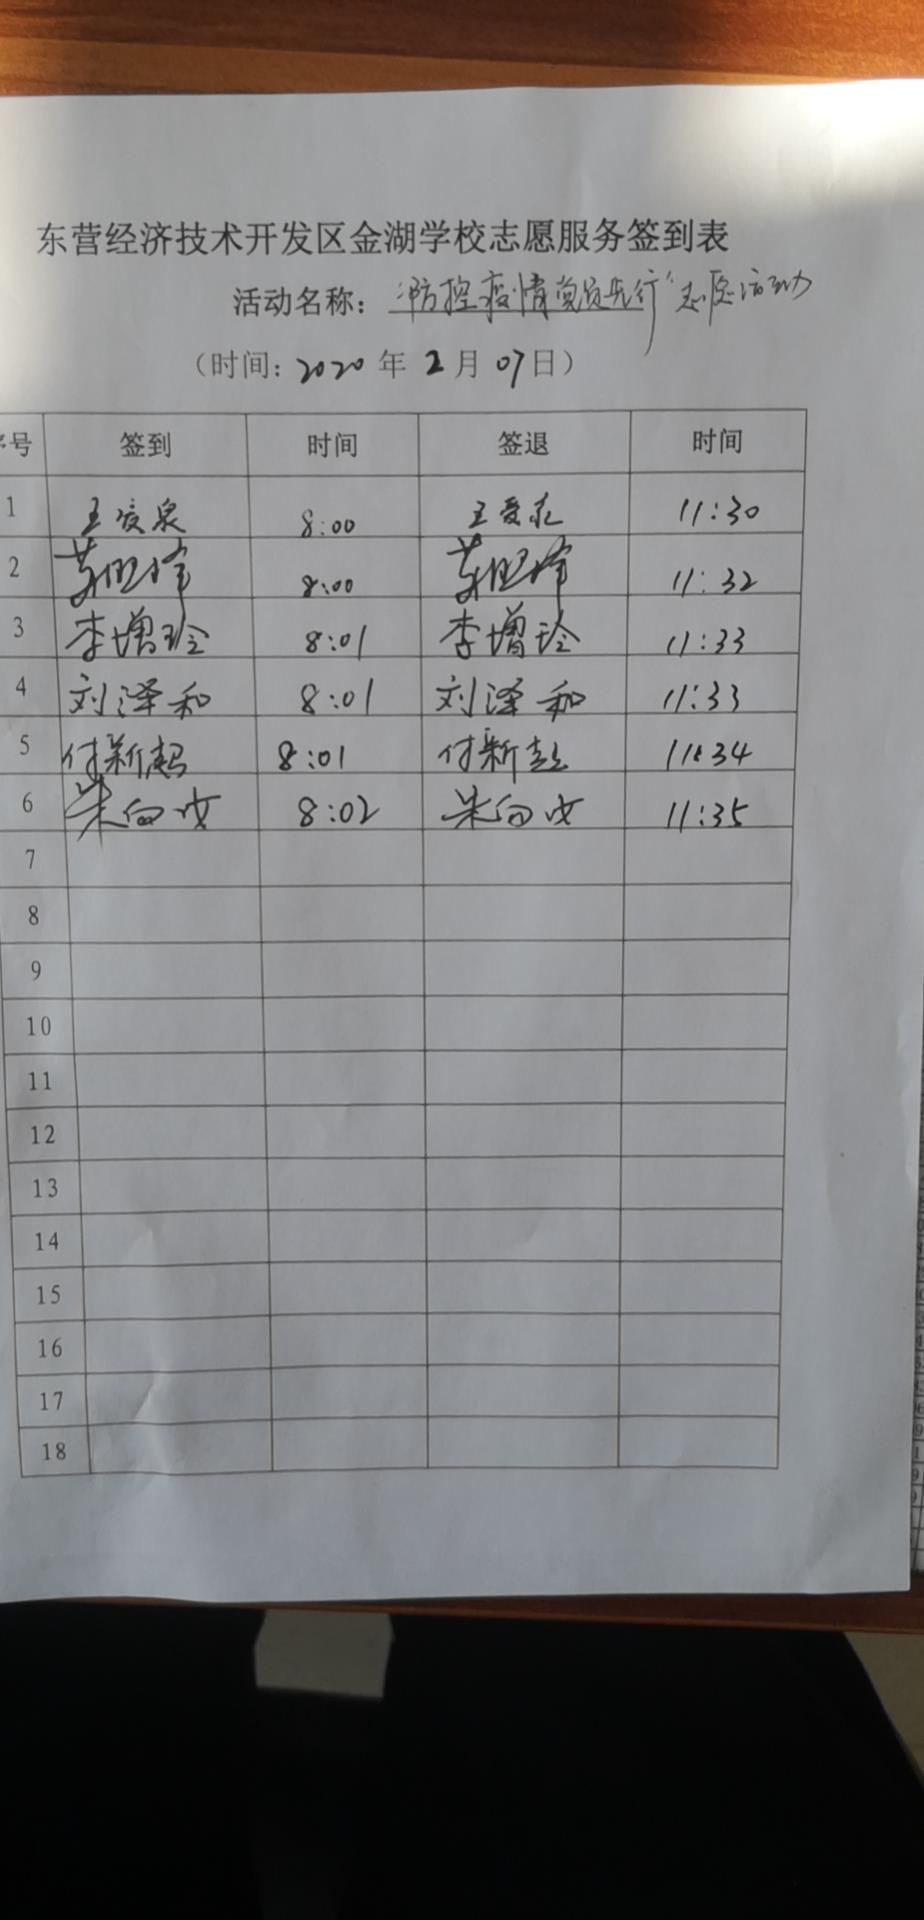 东营经济技术开发区金湖学校志愿服务签到表
活动名称：“防控疫情党员先行”志愿活动
（时间：2020年2月07日）
序号 签到 时间 签退 时间
1 王爱泉 8:00 王爱泉 11:30
2 8:00 11:32
3 李增玲 8:01 李增玲 11:33
4 刘泽和 8:01 刘泽和 11:33
5 付新超 8:01 付新超 11:34
6 8:02 11:35
7
8
9
10
11
12
13
14
15
16
17
18